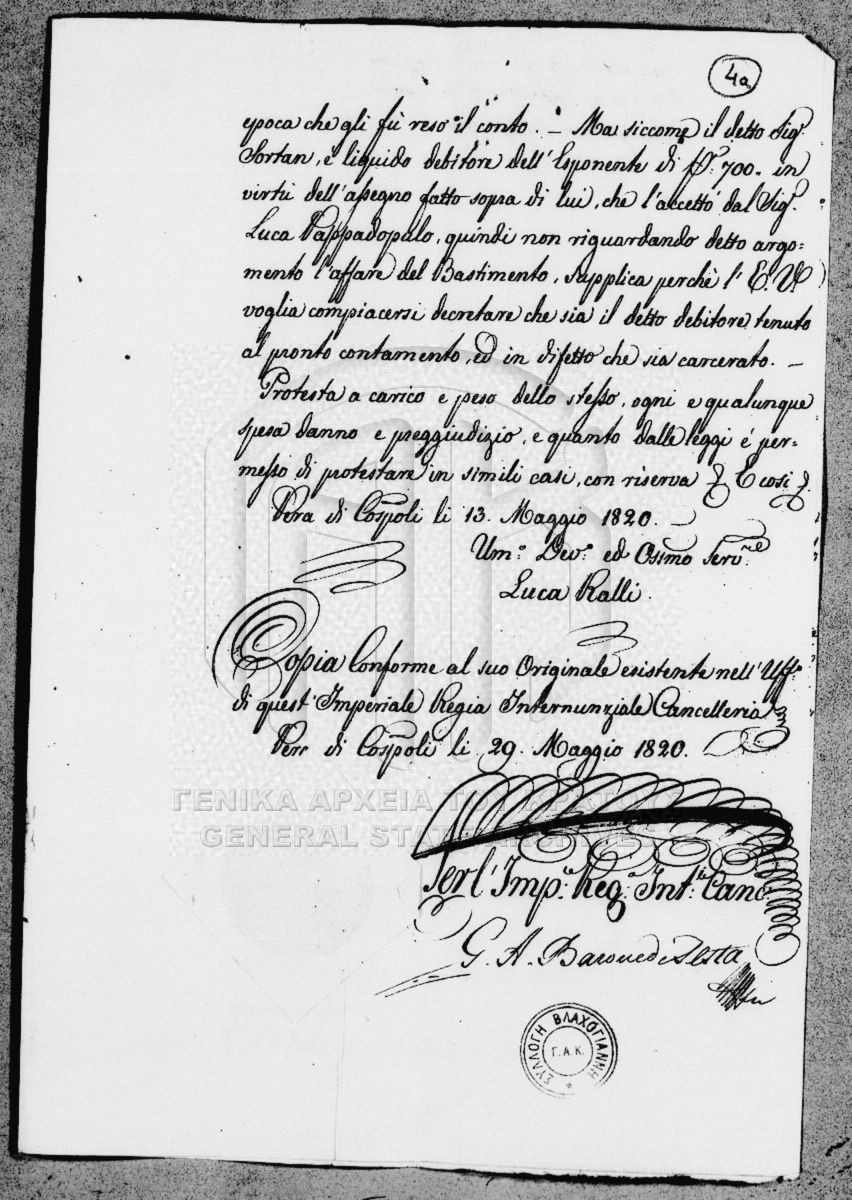 4a
epoca che gli fù reso il conto. – Ma siccome il detto Sigr.
Sortan, è liquido debitore dell'Esponente di 700. in
virtù dell'assegno fatto sopra di lui, che l'accettò dal Sigr.
Luca Pappadopulo, quindi non riguardando detto argo=
mento l'affare del Bastimento, Supplica perchè l'E. V.
voglia compiacersi decretare che sia il detto debitore tenuto
al pronto contamento, ed in difetto che sia carcerato. –
Protesta a carico e peso dello stesso, ogni e qualunque
spesa danno e preggiudizio, e quanto dalle leggi é per=
messo di protestare in simili casi, con riserva E cosi
Pera di Cospoli li 13. Maggio 1820. –
Umo. Devo. ed Ossmo Servre
Luca Ralli.
Copia Conforme al suo Originale esistente nell'Uffo
di quest'Imperiale Regia Internunziale Cancelleria
Pera di Cospoli li 29. Maggio 1820.
ΓΕΝΙΚΑ ΑΡΧΕΙΑ ΤΟΥ ΚΡΑΤΟΥΣ
GENERAL STATE ARCHIVES
Per l'Imple. Rega. Intle. Canc.
G. A. Barone de Testa
ΣΥΛΛΟΓΗ ΒΛΑΧΟΓΙΑΝΝΗ
Γ.Α.Κ.